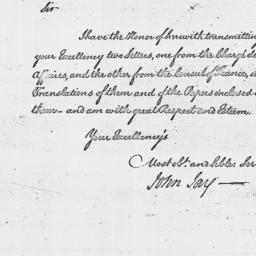 Sir
I have the Honor of herewith transmitting
your Excellency two Letters, one from the Chargé de
Affaires, and the other from the Consul of France,
Translations of them and of the Papers inclosed
them — and am with great Respect and Esteem.
Your Excellency's
Most obt. and hble. Ser
John Jay —